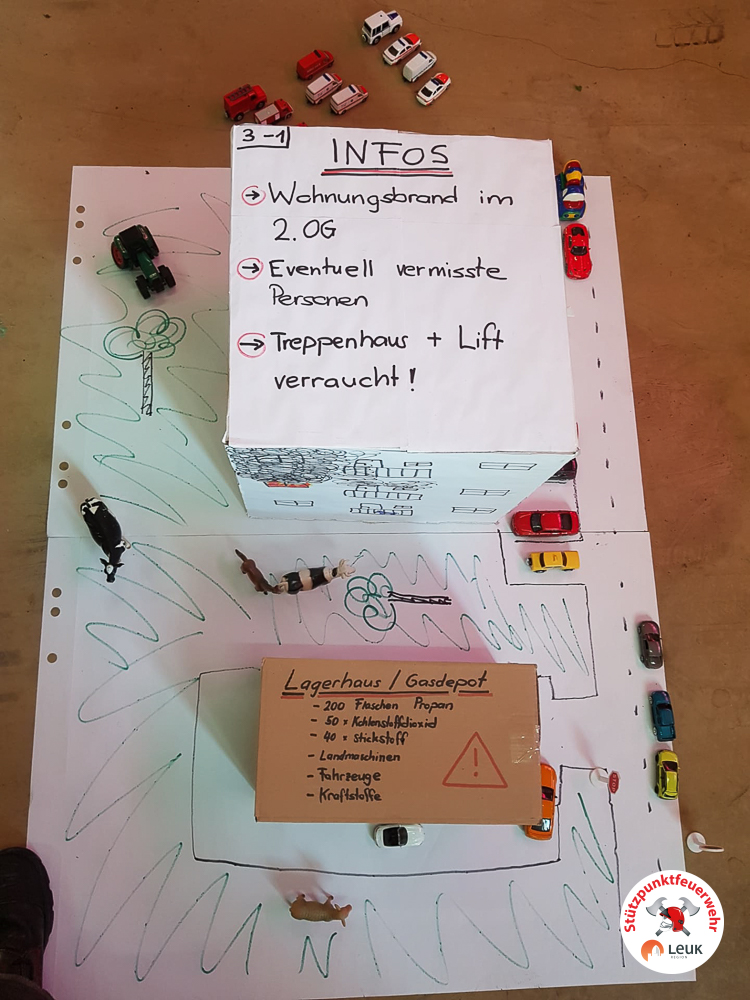 3-1
INFOS
→ Wohnungsbrand im
2. OG
→ Eventuell vermisste
Personen
→ Treppenhaus + Lift
verraucht!
Lagerhaus / Gasdepot
- 200 Flaschen Propan
- 50 " Kohlenstoffdioxid
- 40 " Stickstoff
- Landmaschinen
- Fahrzeuge
- Kraftstoffe
!
N
Stützpunktfeuerwehr
LEUK
REGION